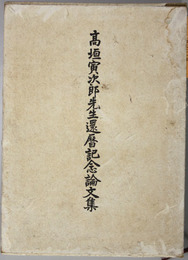 高垣寅次郎先生還暦記念論文集